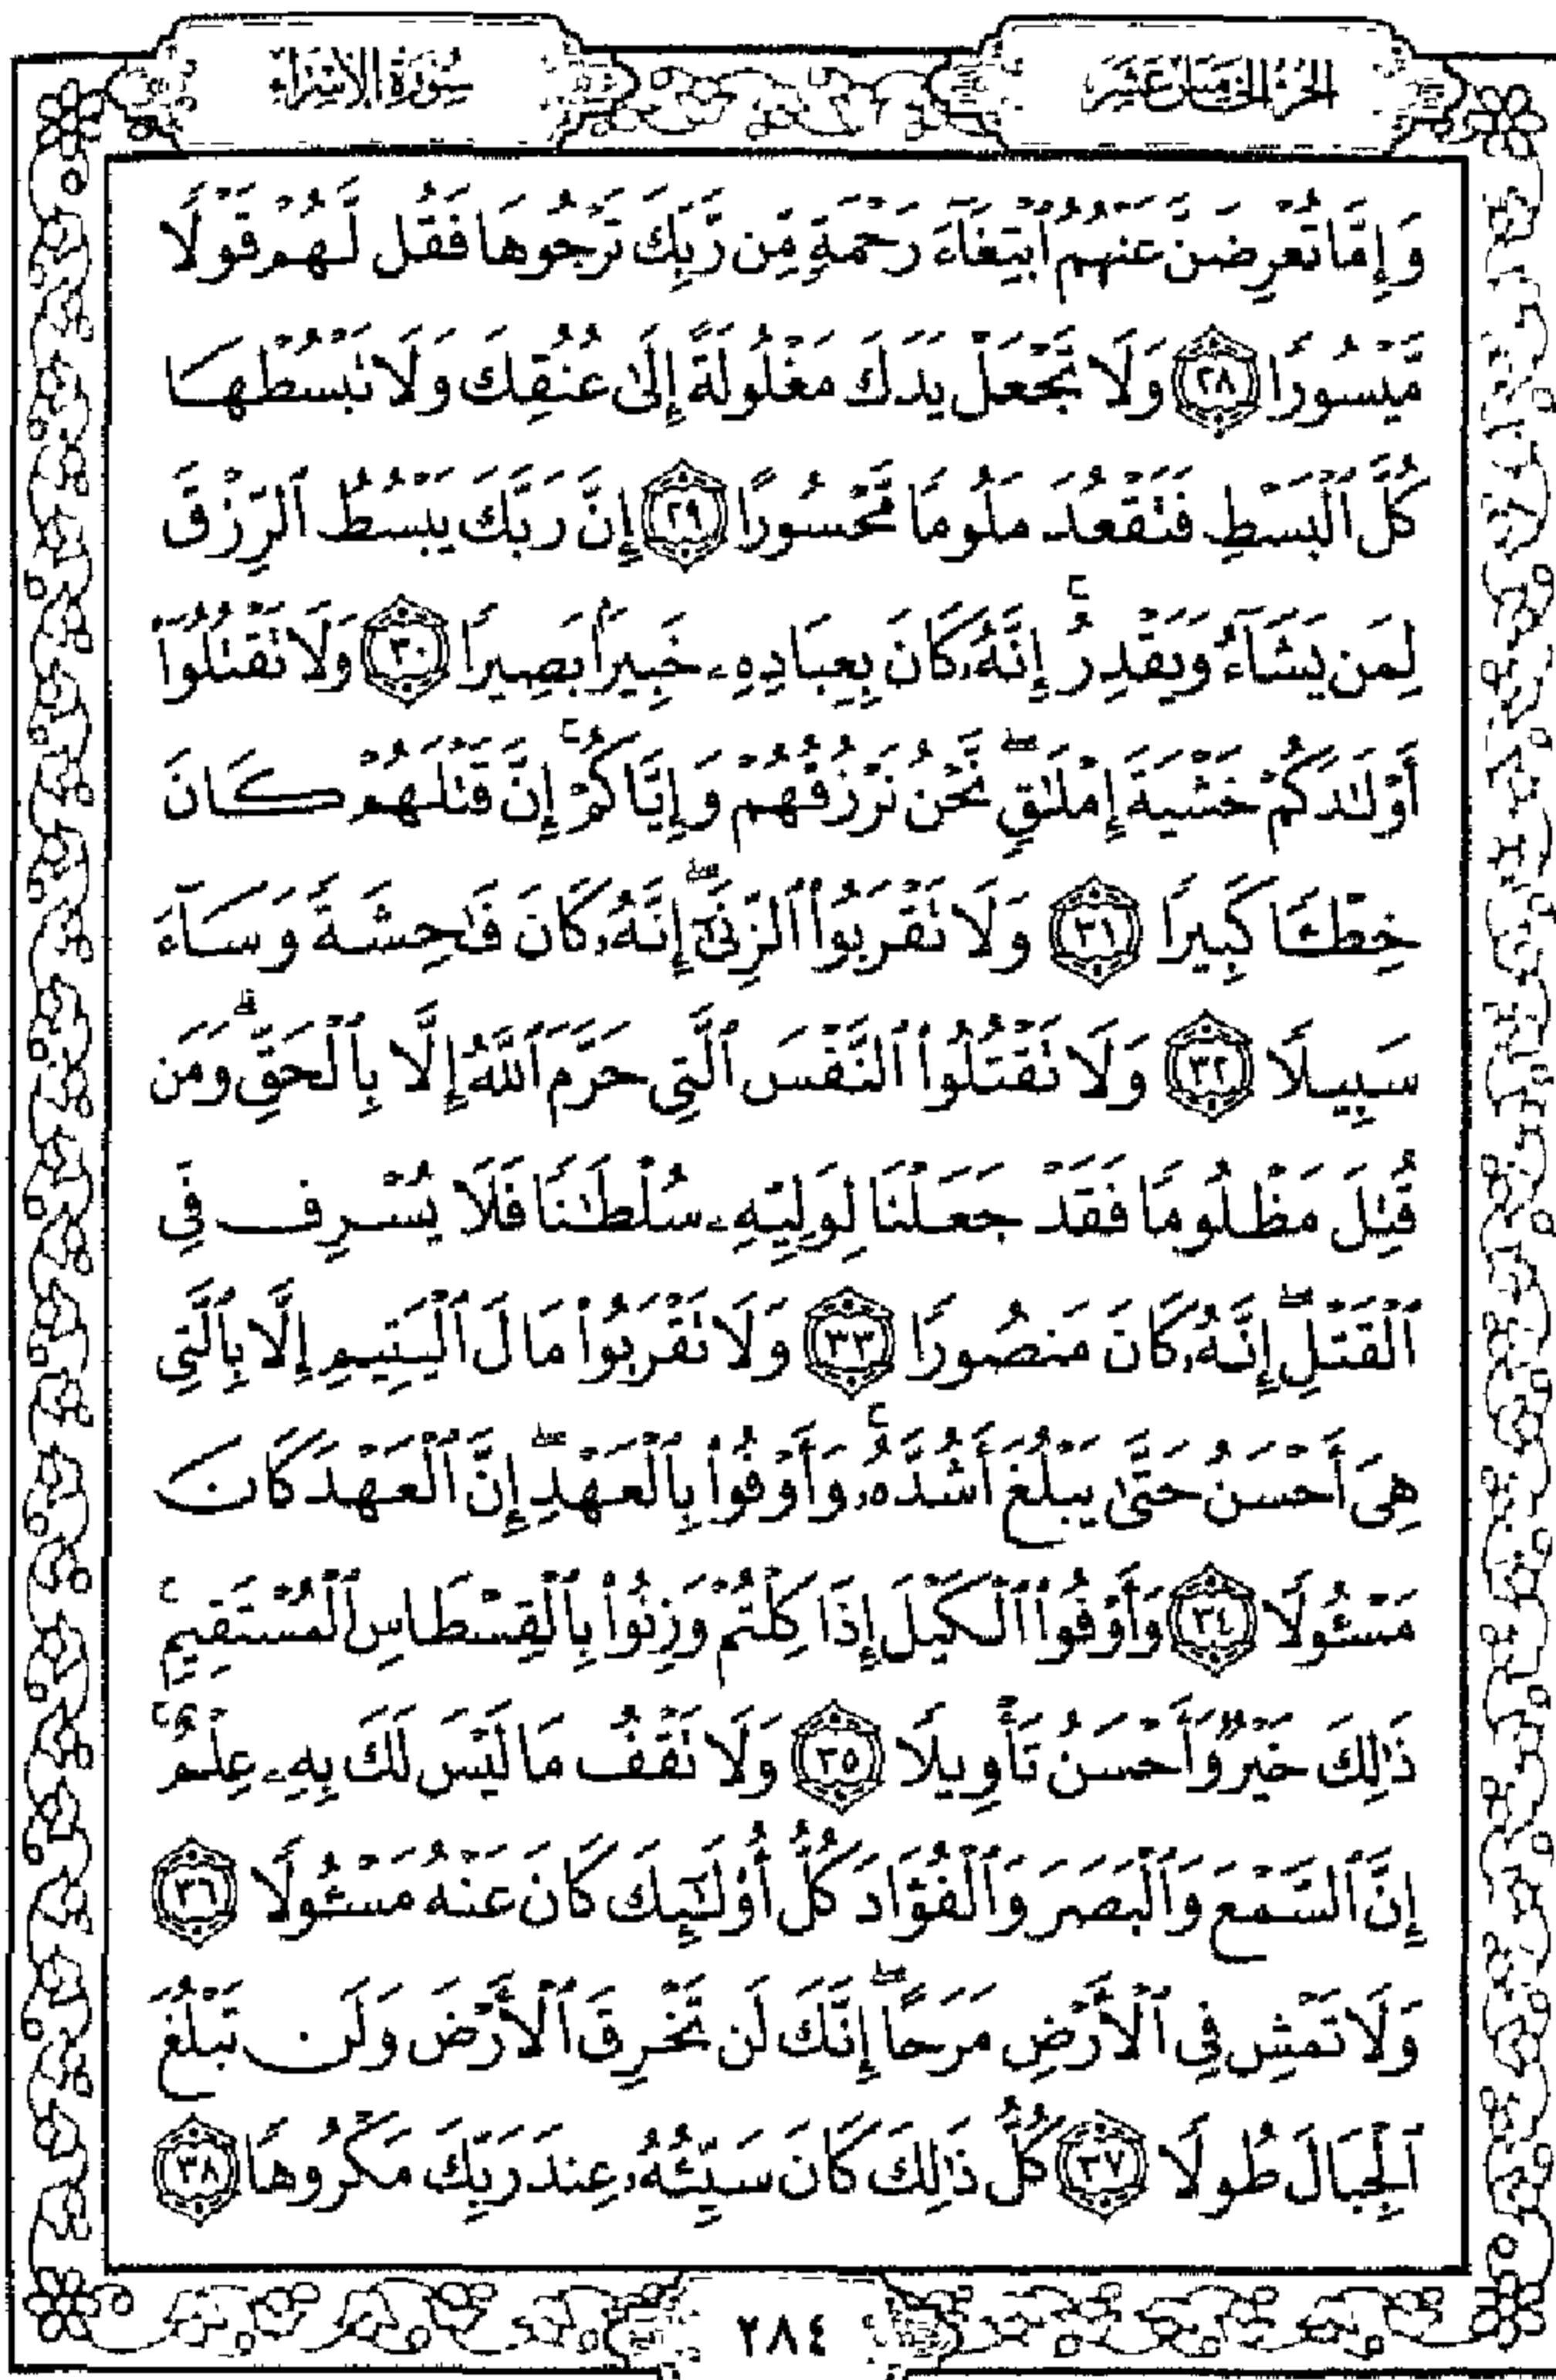 الجزء الخامس عشر
سورة الإسراء
وَإِمَّا تُعْرِضَنَّ عَنْهُمُ ٱبْتِغَآءَ رَحْمَةٍ مِّن رَّبِّكَ تَرْجُوهَا فَقُل لَّهُمْ قَوْلًا
مَّيْسُورًا ٢٨ وَلَا تَجْعَلْ يَدَكَ مَغْلُولَةً إِلَىٰ عُنُقِكَ وَلَا تَبْسُطْهَا
كُلَّ ٱلْبَسْطِ فَتَقْعُدَ مَلُومًا مَّحْسُورًا ٢٩ إِنَّ رَبَّكَ يَبْسُطُ ٱلرِّزْقَ
لِمَن يَشَآءُ وَيَقْدِرُ ۚ إِنَّهُۥ كَانَ بِعِبَادِهِۦ خَبِيرًۢا بَصِيرًا ٣٠ وَلَا تَقْتُلُوٓا۟
أَوْلَـٰدَكُمْ خَشْيَةَ إِمْلَـٰقٍ ۖ نَّحْنُ نَرْزُقُهُمْ وَإِيَّاكُمْ ۚ إِنَّ قَتْلَهُمْ كَانَ
خِطْـًٔا كَبِيرًا ٣١ وَلَا تَقْرَبُوا۟ ٱلزِّنَىٰٓ ۖ إِنَّهُۥ كَانَ فَـٰحِشَةً وَسَآءَ
سَبِيلًا ٣٢ وَلَا تَقْتُلُوا۟ ٱلنَّفْسَ ٱلَّتِى حَرَّمَ ٱللَّهُ إِلَّا بِٱلْحَقِّ ۗ وَمَن
قُتِلَ مَظْلُومًا فَقَدْ جَعَلْنَا لِوَلِيِّهِۦ سُلْطَـٰنًا فَلَا يُسْرِف فِّى
ٱلْقَتْلِ ۖ إِنَّهُۥ كَانَ مَنصُورًا ٣٣ وَلَا تَقْرَبُوا۟ مَالَ ٱلْيَتِيمِ إِلَّا بِٱلَّتِى
هِىَ أَحْسَنُ حَتَّىٰ يَبْلُغَ أَشُدَّهُۥ ۚ وَأَوْفُوا۟ بِٱلْعَهْدِ ۖ إِنَّ ٱلْعَهْدَ كَانَ
مَسْـُٔولًا ٣٤ وَأَوْفُوا۟ ٱلْكَيْلَ إِذَا كِلْتُمْ وَزِنُوا۟ بِٱلْقِسْطَاسِ ٱلْمُسْتَقِيمِ ۚ
ذَٰلِكَ خَيْرٌ وَأَحْسَنُ تَأْوِيلًا ٣٥ وَلَا تَقْفُ مَا لَيْسَ لَكَ بِهِۦ عِلْمٌ ۚ
إِنَّ ٱلسَّمْعَ وَٱلْبَصَرَ وَٱلْفُؤَادَ كُلُّ أُو۟لَـٰٓئِكَ كَانَ عَنْهُ مَسْـُٔولًا ٣٦
وَلَا تَمْشِ فِى ٱلْأَرْضِ مَرَحًا ۖ إِنَّكَ لَن تَخْرِقَ ٱلْأَرْضَ وَلَن تَبْلُغَ
ٱلْجِبَالَ طُولًا ٣٧ كُلُّ ذَٰلِكَ كَانَ سَيِّئُهُۥ عِندَ رَبِّكَ مَكْرُوهًا ٣٨
٢٨٤